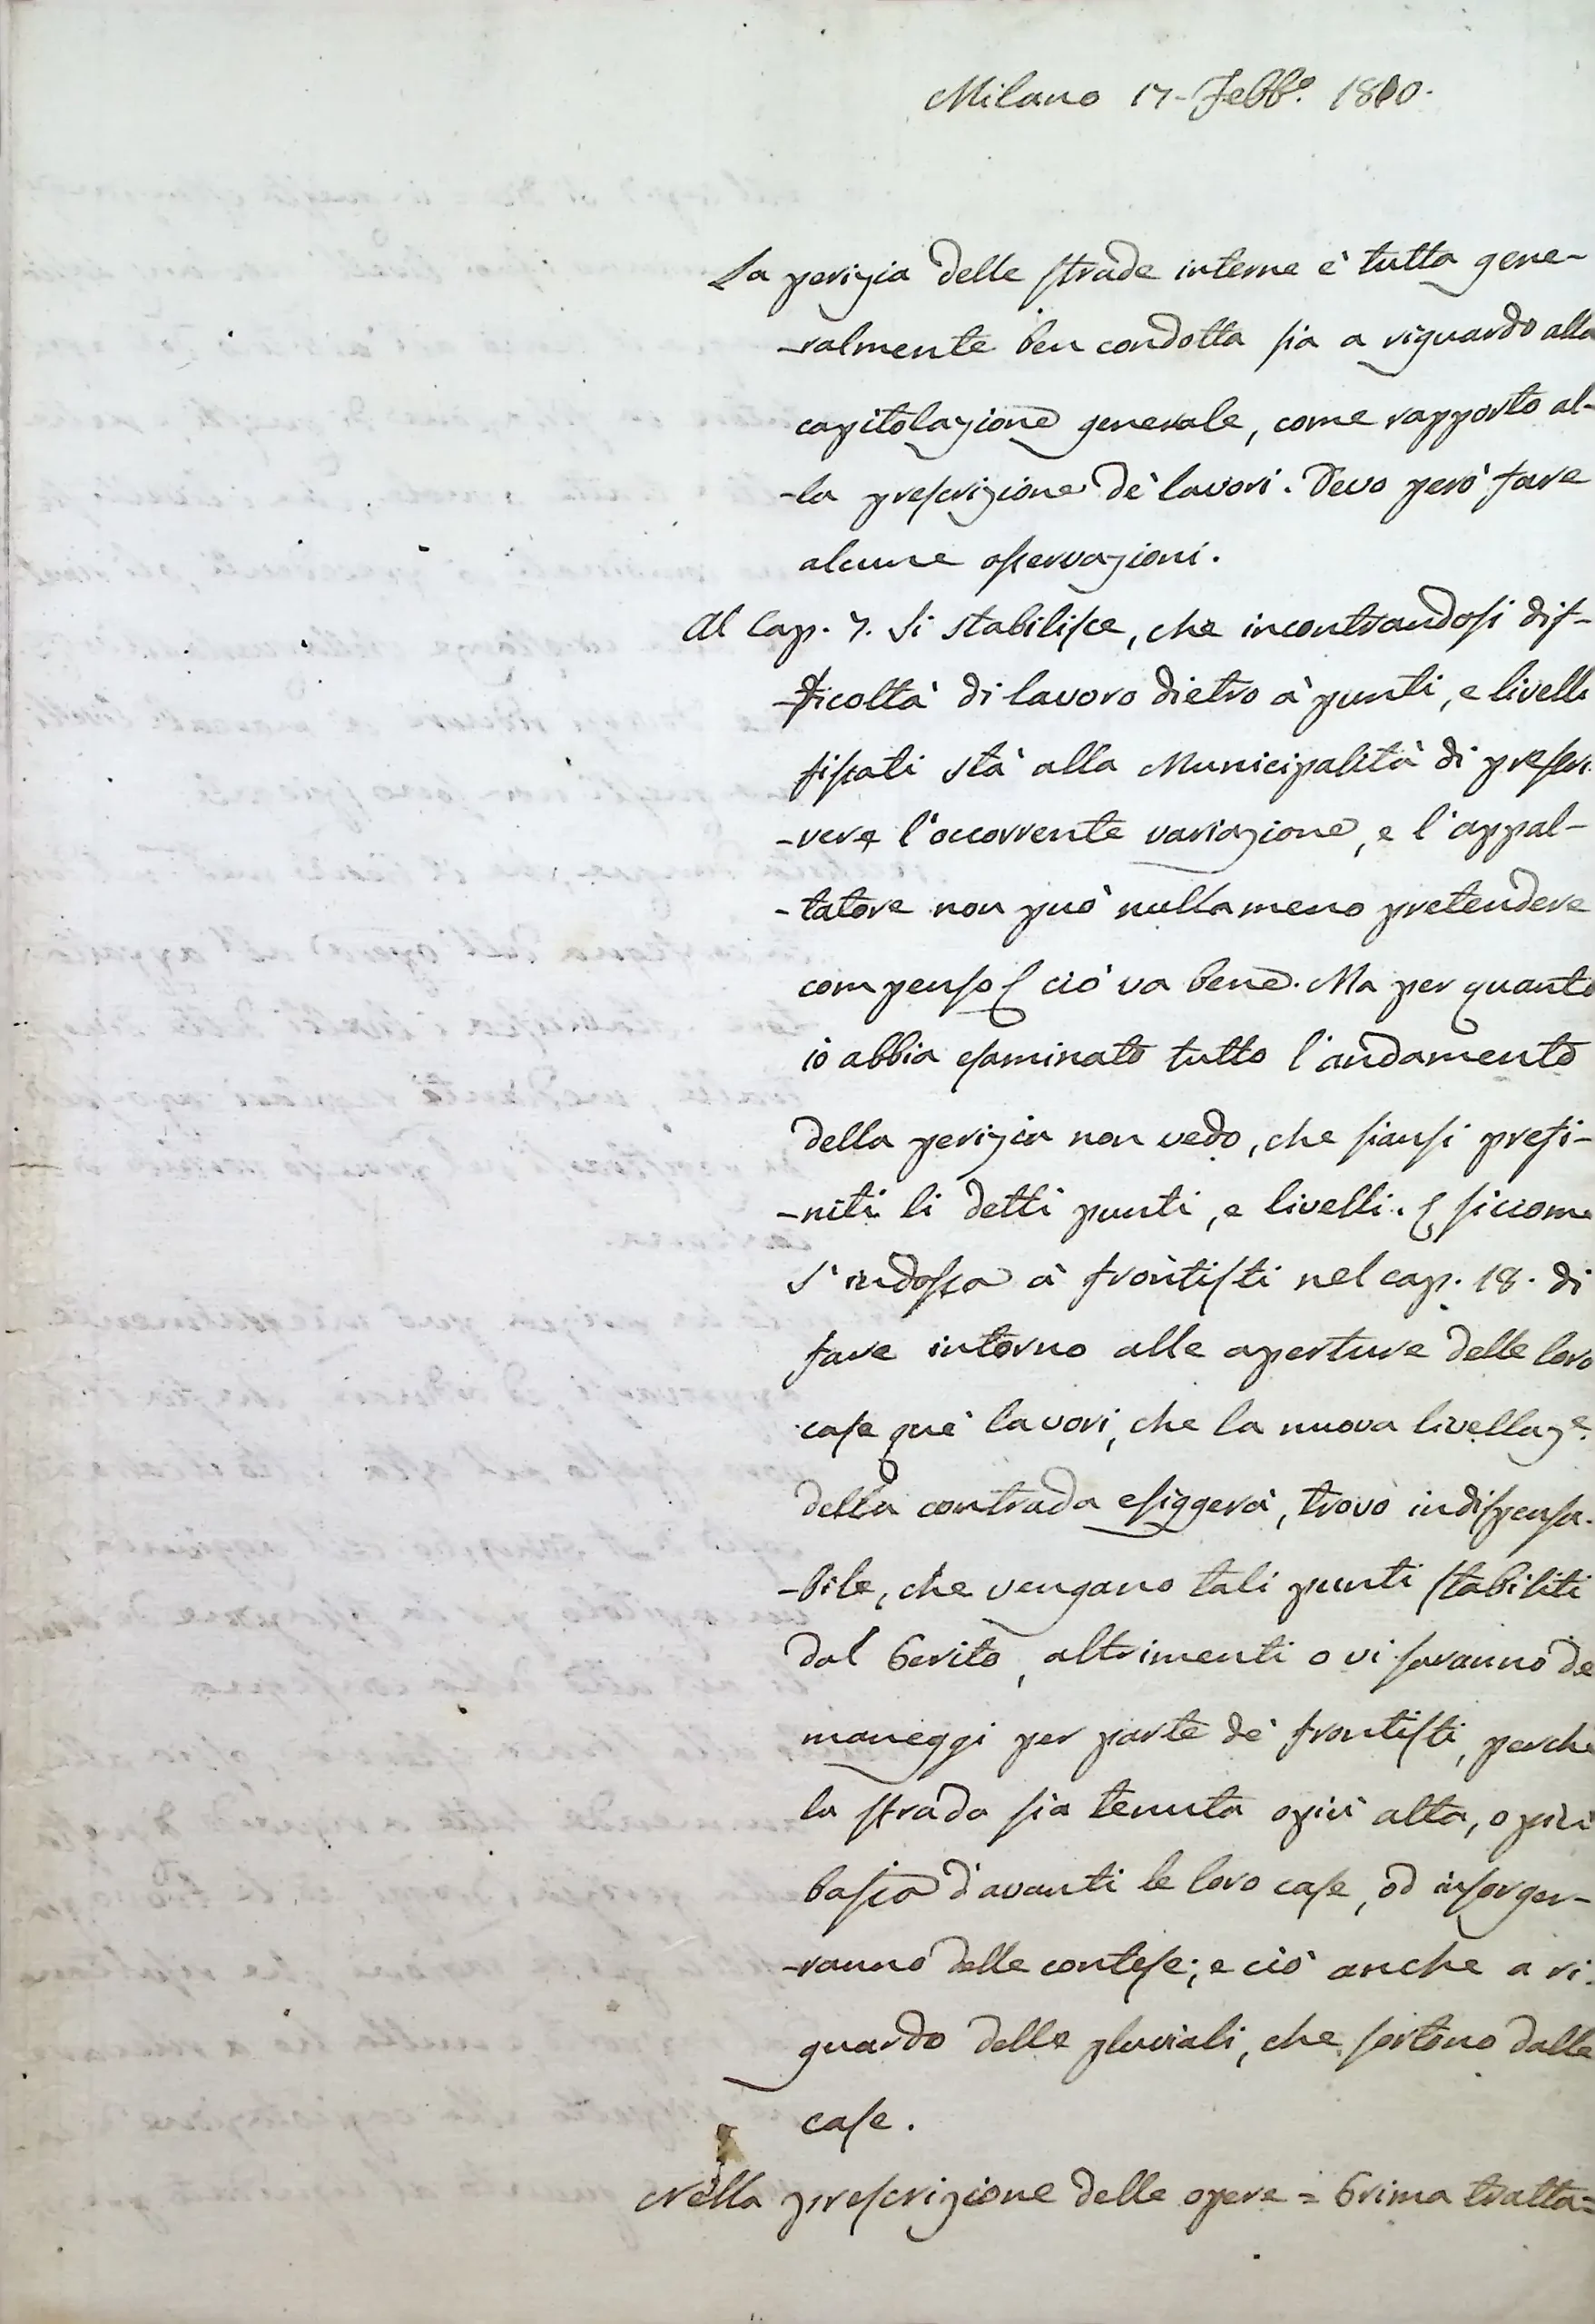 Milano 17. Febb.º 1810.
La perizia delle strade interne è tutta gene-
-ralmente ben condotta sia a riguardo alla
capitolazione generale, come rapporto al-
-la prescrizione de' lavori. Devo però fare
alcune osservazioni.
Al Cap. 7. Si stabilisce, che incontrandosi dif-
-ficoltà di lavoro dietro a' punti, e livelli
fissati stà alla Municipalità di prescri-
-vere l'occorrente variazione, e l'appal-
-tatore non può nullameno pretendere
compenso E ciò va bene. Ma per quanto
io abbia esaminato tutto l'andamento
della perizia non vedo, che siansi prefi-
-niti li detti punti, e livelli. E siccome
s'indossa a' frontisti nel cap. 18. di
fare intorno alle aperture delle loro
case que' lavori, che la nuova livellaz.e
della contrada esiggerà, trovo indispensa-
-bile, che vengano tali punti stabiliti
dal Perito, altrimenti o vi saranno de'
maneggi per parte de' frontisti, perchè
la strada sia tenuta o più alta, o più
bassa d'avanti le loro case, od insorger-
-ranno delle contese; e ciò anche a ri-
guardo delle pluviali, che sortono dalle
case.
Nella prescrizione delle opere = Prima tratta=